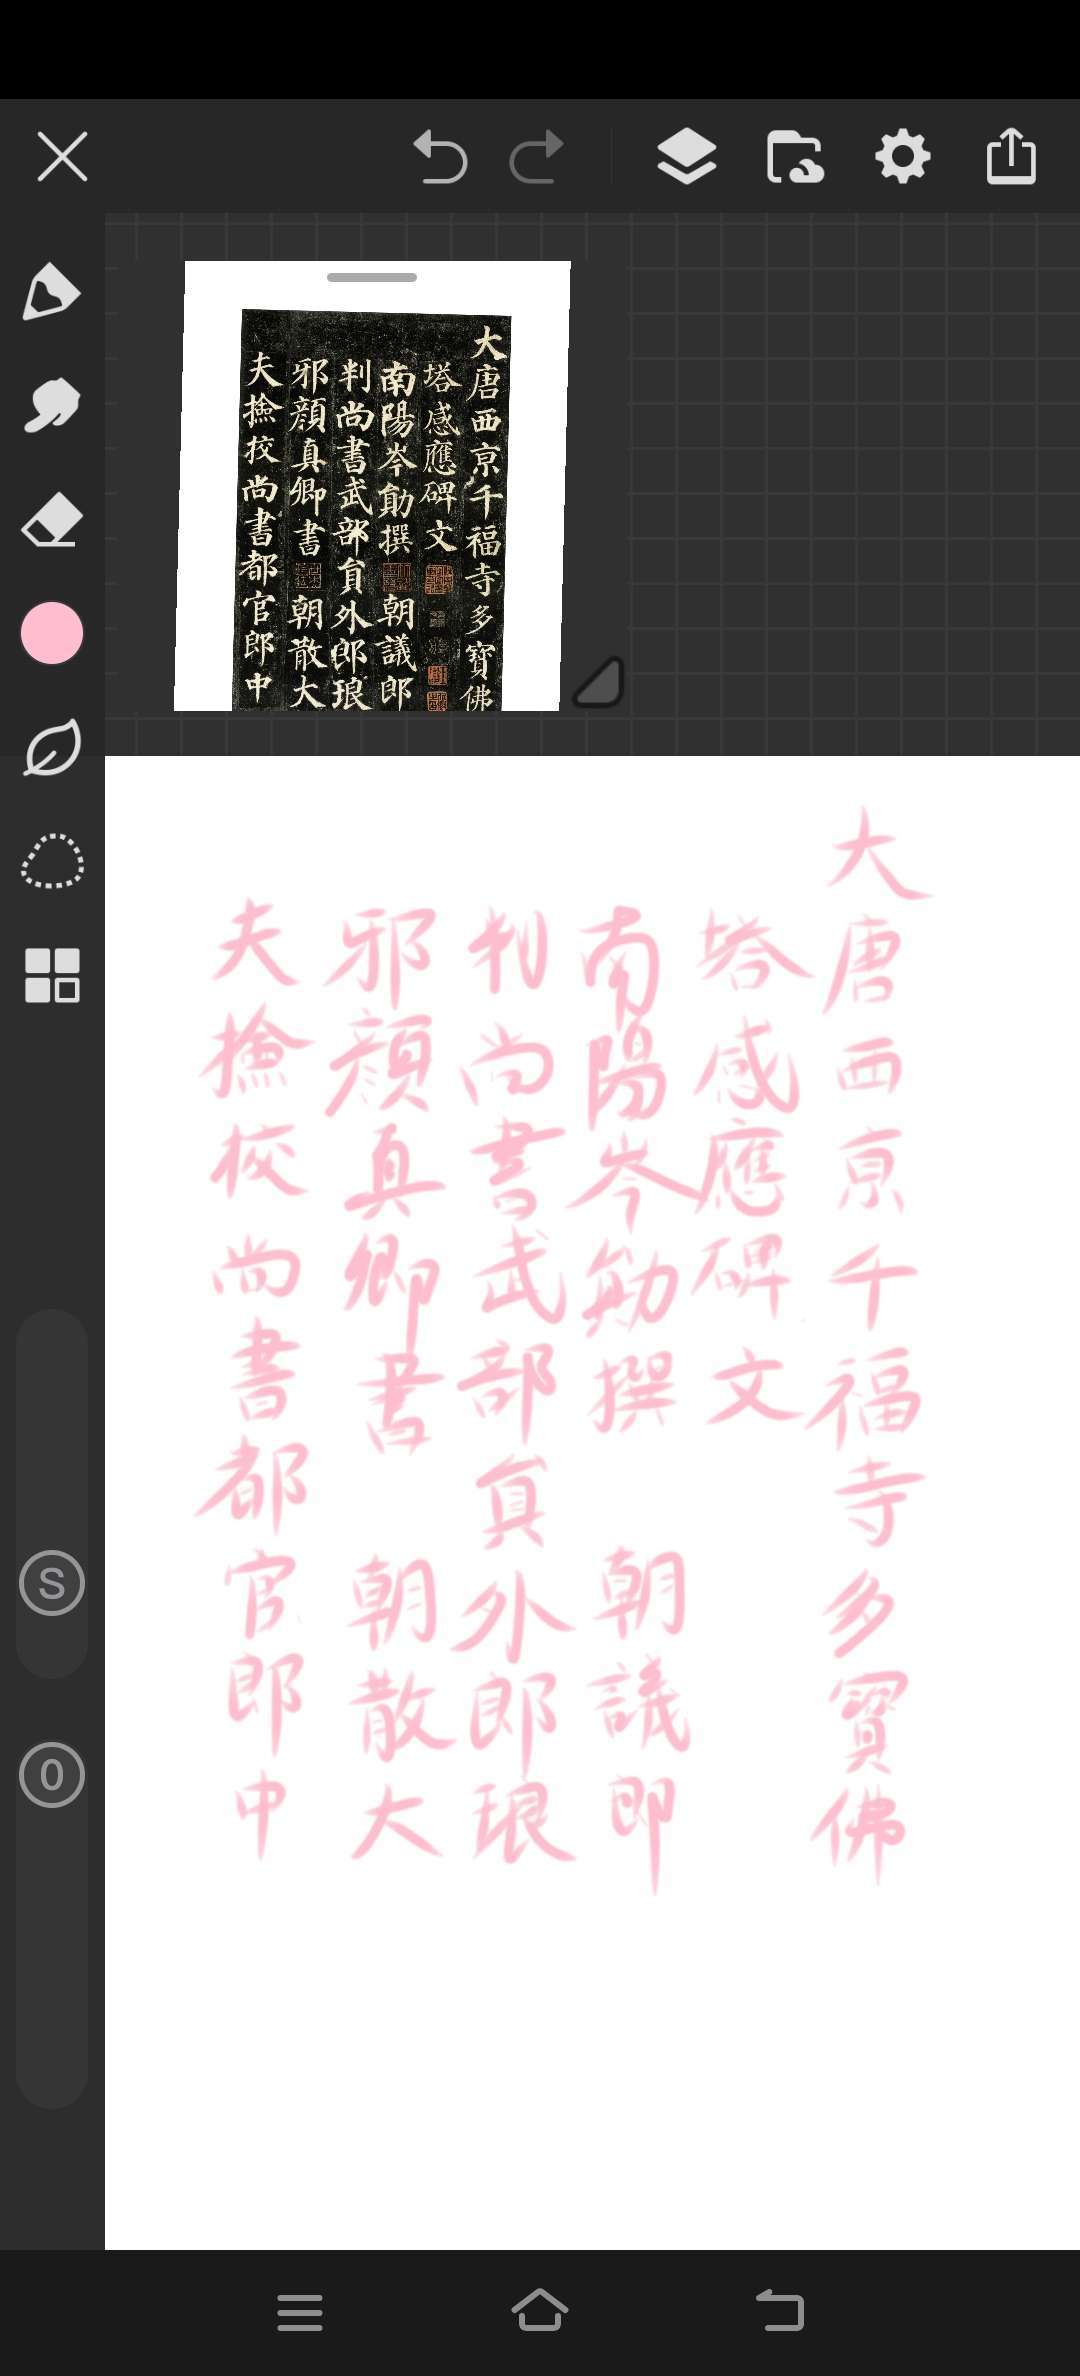 大唐西京千福寺多寶佛
塔感應碑文
南陽岑勛撰 朝議郎
判尚書武部員外郎琅
邪顏真卿書 朝散大
夫撿校尚書都官郎中
S
O
大唐西京千福寺多寶佛
塔感應碑文
南陽岑勛撰 朝議郎
判尚書武部員外郎琅
邪顏真卿書 朝散大
夫撿校尚書都官郎中